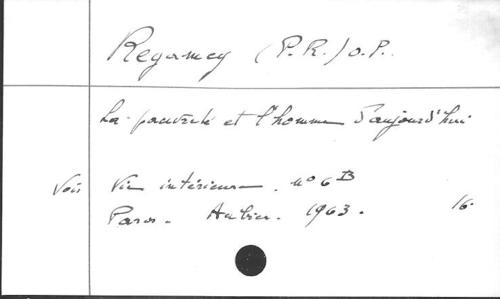 Regamey (P.R.) o.P.
La pauvreté et l'homme d'aujourd'hui
Voir Vie intérieure. no 6 B
Paris. Aubier. 1963. 16.